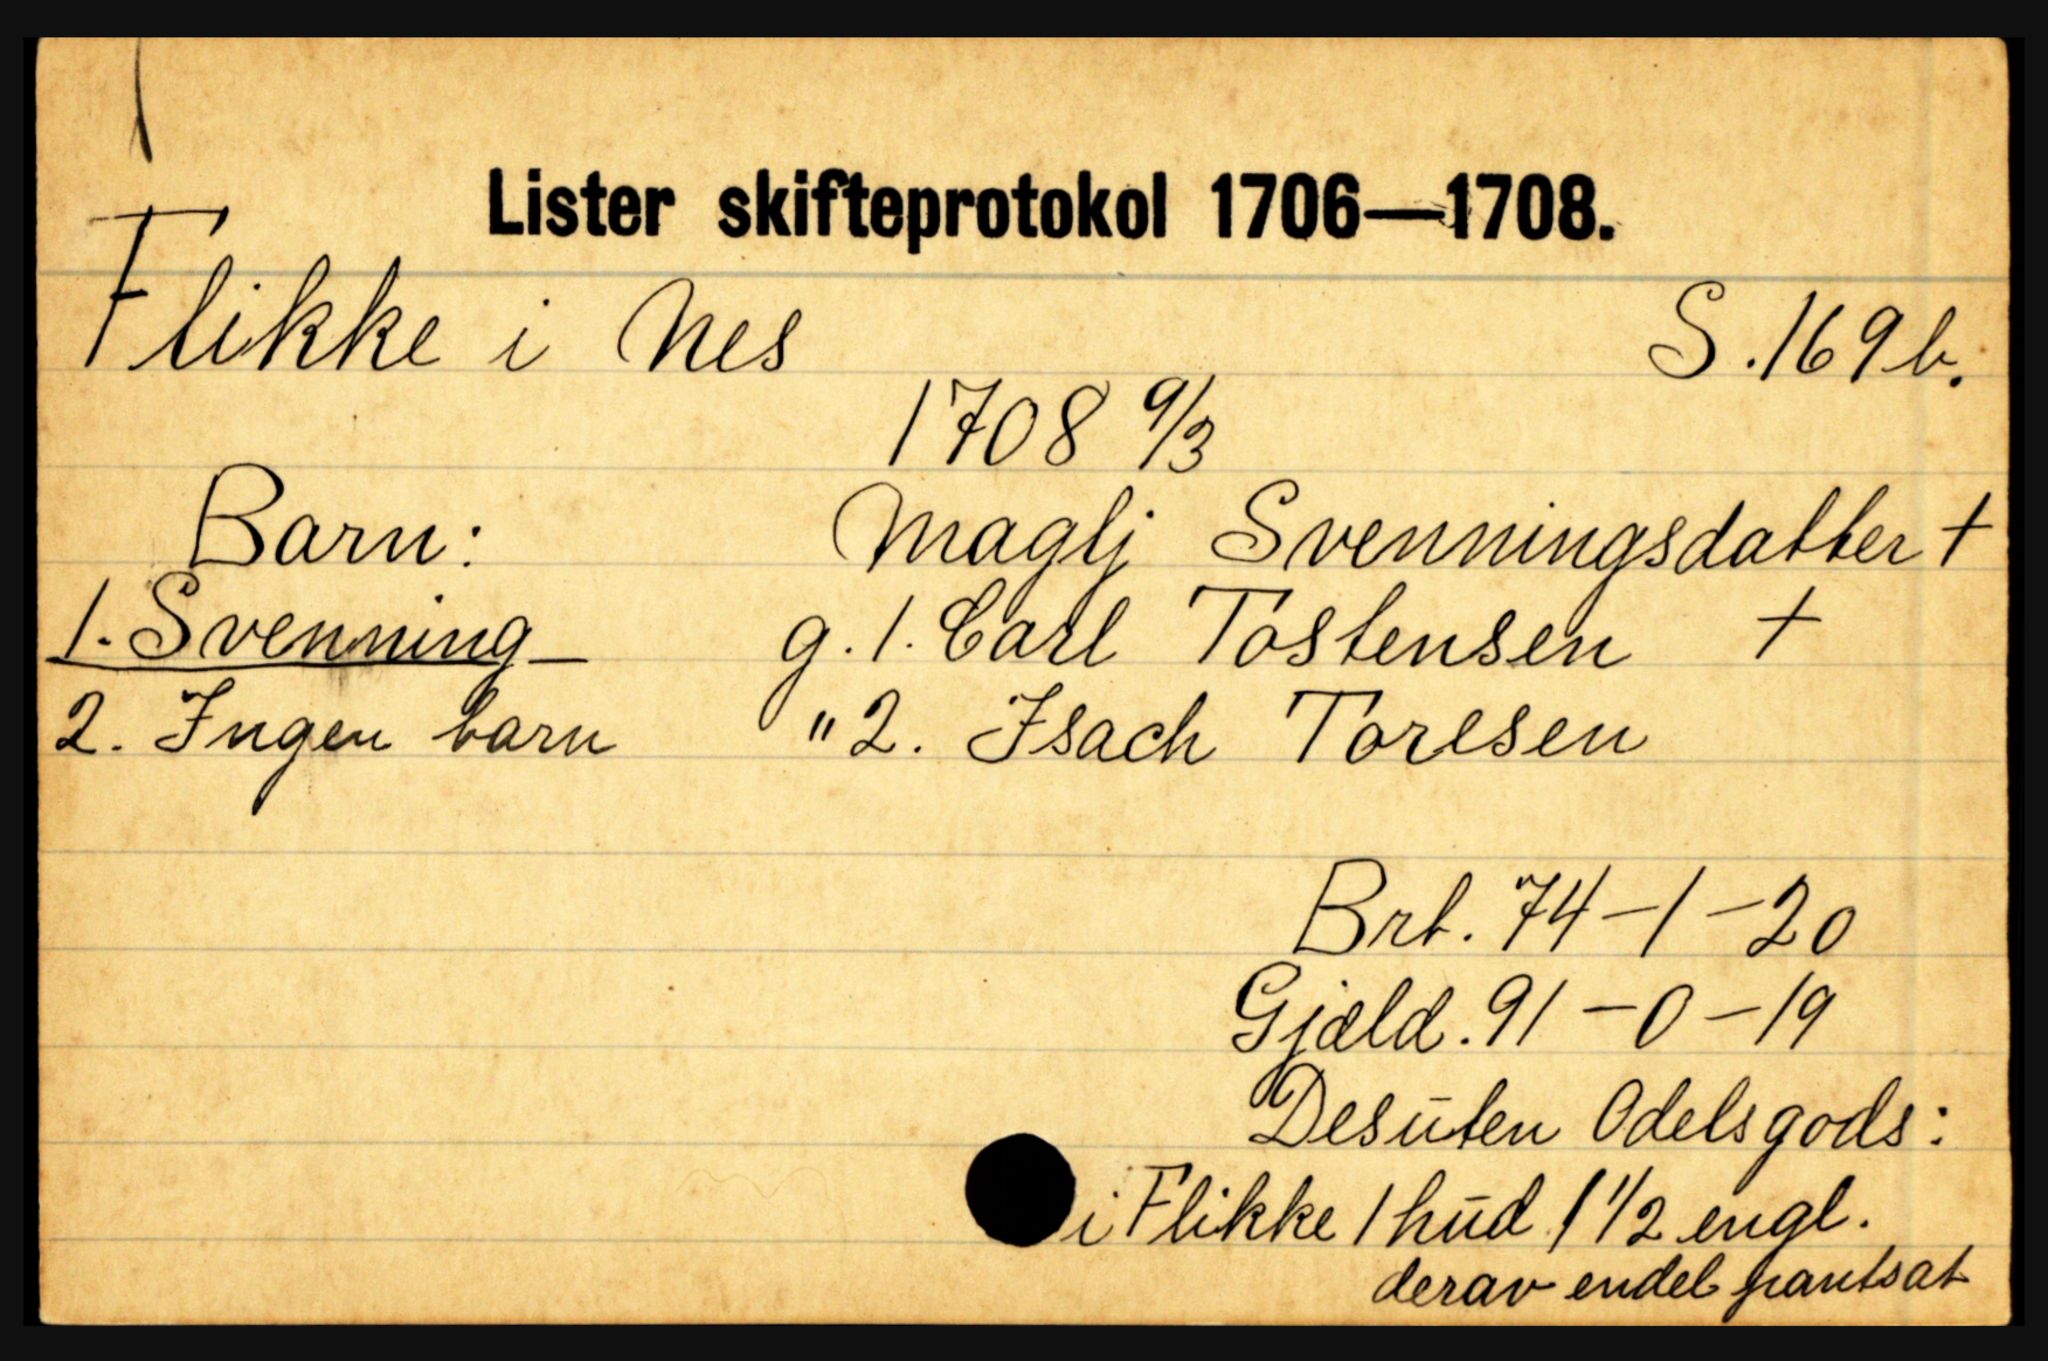 Lister skifteprotokol 1706—1708.
Flikke i Nes S. 169 b.
1708 9/3
Barn: Maglj Svenningsdatter +
1. Svenning — g. 1. Carl Tostensen +
2. Ingen barn " 2. Isach Toresen
Brt. 74 - 1 - 20
Gjæld. 91 - 0 - 19
Desuten Odelsgods:
i Flikke 1 hud 1 1/2 engl.
derav endel pantsat